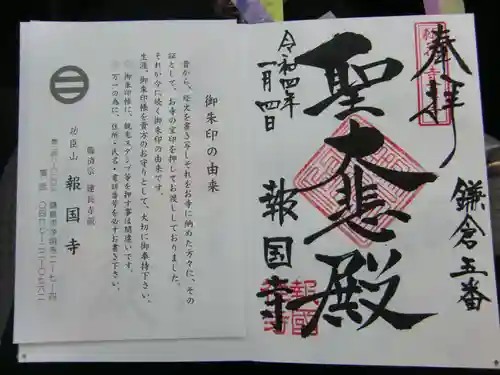 奉拝
鎌倉五番
聖大悲殿
令和四年
一月四日
報国寺
御朱印の由来
昔から、経文を書き写しそれをお寺に納めた方々に、その
証として、お寺の宝印を押してお渡ししておりました。
それが今に続く御朱印の由来です。
生涯、御朱印帳を貴方のお守りとして、大切に御奉持下さい。
御朱印帳に、観光スタンプ等を押す事は間違いです。
万一の為に、住所・氏名・電話番号を必ずお書き下さい。
臨済宗 建長寺派
功臣山 報国寺
鎌倉市浄明寺二ー七ー四